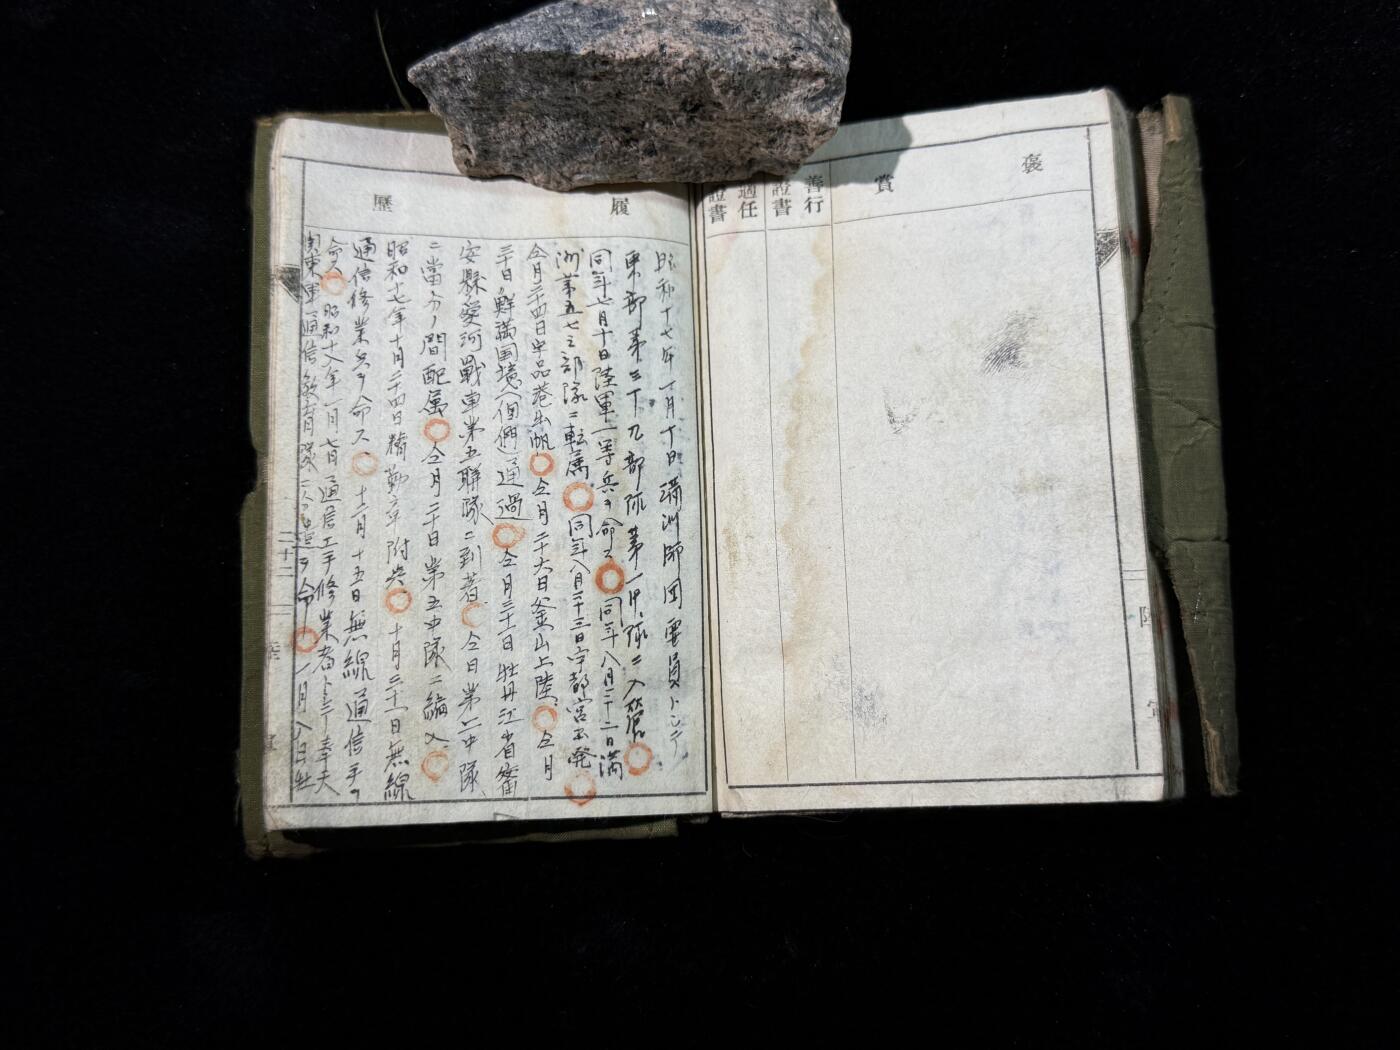 褒賞
善行證書
適任證書
履歷
昭和十七年一月十日満洲師団要員トシテ
東部第三十九部隊第一中隊ニ入營
同年七月十日陸軍一等兵ヲ命ス 同年八月二十二日満
洲第五七三部隊ニ転属 同年八月二十三日宇都宮出発
仝月二十四日 品港出帆 仝月二十六日釜山上陸 仝月
三十日鮮満国境通過 仝月三十一日牡丹江省寧
安縣愛河戦車第五聯隊ニ到着 仝日第二中隊
ニ當分ノ間配属 仝月二十日第五中隊ニ編入
昭和十七年十月二十四日精勤章附与 十月三十一日無線
通信修業兵ヲ命ス 十二月十五日無線通信手ヲ
命ス 昭和十八年一月七日通信工手修業者トシテ奉天
関東軍通信教育隊ニ ヲ命 一月八日牡
二十二